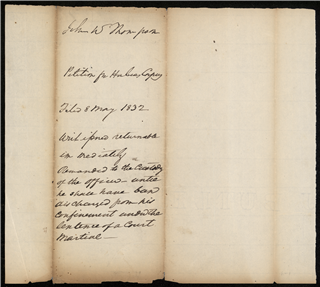 John W Thompson
Petition for Habeas Corpus
Filed 8 May 1832
Writ issued returnable
immediately
Remanded to the Custody
of the officer until
he shall have been
discharged from his
confinement under the
Sentence of a Court
Martial —